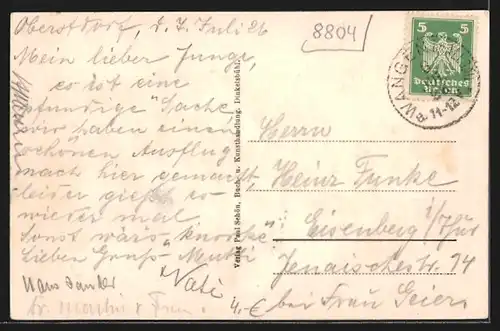 Oberstdorf, d. 7. Juli 26
8804
Mein lieber Junge,
es ist eine
"pfundige" Sache
wir haben einen
schönen Ausflug
nach hier gemacht,
leider gießt es
wieder mal
sonst wär's "knorke"
lieben Gruß - Mutti
Vati
4,-€
Verlag Paul Schön, Buch- u. Kunsthandlung, Dinkelsbühl.
5 5
Deutsches
Reich
WANGE
11-12
Herrn
Heinz Funke
Eisenberg i/Thür
Jenaischestr. 74
bei Frau Geier